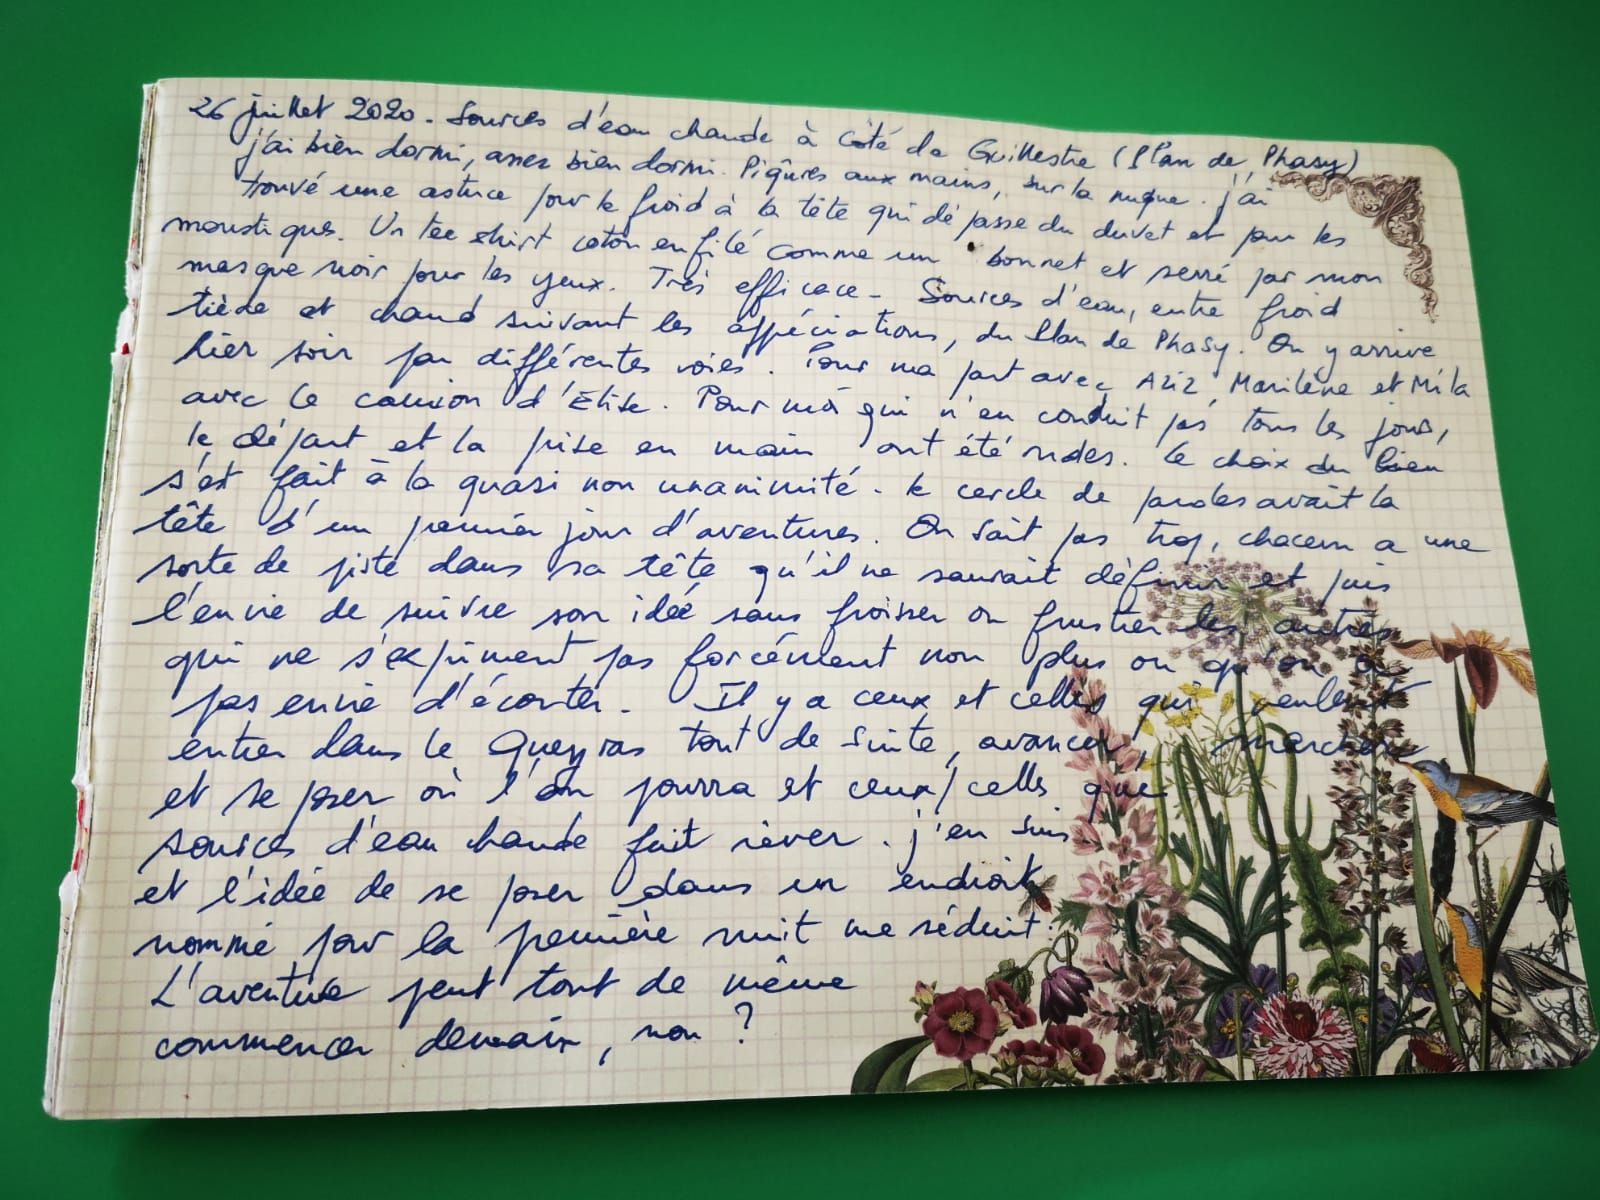 26 juillet 2020. Sources d'eau chaude à côté de Guillestre (Plan de Phasy)
j'ai bien dormi, assez bien dormi. Piqûres aux mains, sur la nuque. j'ai
trouvé une astuce pour le froid à la tête qui dépasse du duvet et pour les
moustiques. Un tee shirt coton enfilé comme un bonnet et serré par mon
masque noir pour les yeux. Très efficace - Sources d'eau, entre froid
tiède et chaud suivant les appréciations, du Plan de Phasy. On y arrive
hier soir par différentes voies. Pour ma part avec Aziz, Marilène et Mila
avec le camion d'Elise. Pour moi qui n'en conduit pas tous les jours,
le départ et la prise en main ont été rudes. Le choix du lieu
s'est fait à la quasi non unanimité. le cercle de paroles avait la
tête d'un premier jour d'aventures. On sait pas trop, chacun a une
sorte de piste dans sa tête qu'il ne saurait définir et puis
l'envie de suivre son idée sans froisser ou frustrer les autres
qui ne s'expriment pas forcément non plus ou qu'on a
pas envie d'écouter. Il y a ceux et celles qui veulent
entrer dans le Queyras tout de suite, avancer, marcher
et se poser où l'on pourra et ceux/celles que
sources d'eau chaude fait rêver. j'en suis
et l'idée de se poser dans un endroit
nommé pour la première nuit me séduit.
L'aventure peut tout de même
commencer demain, non ?